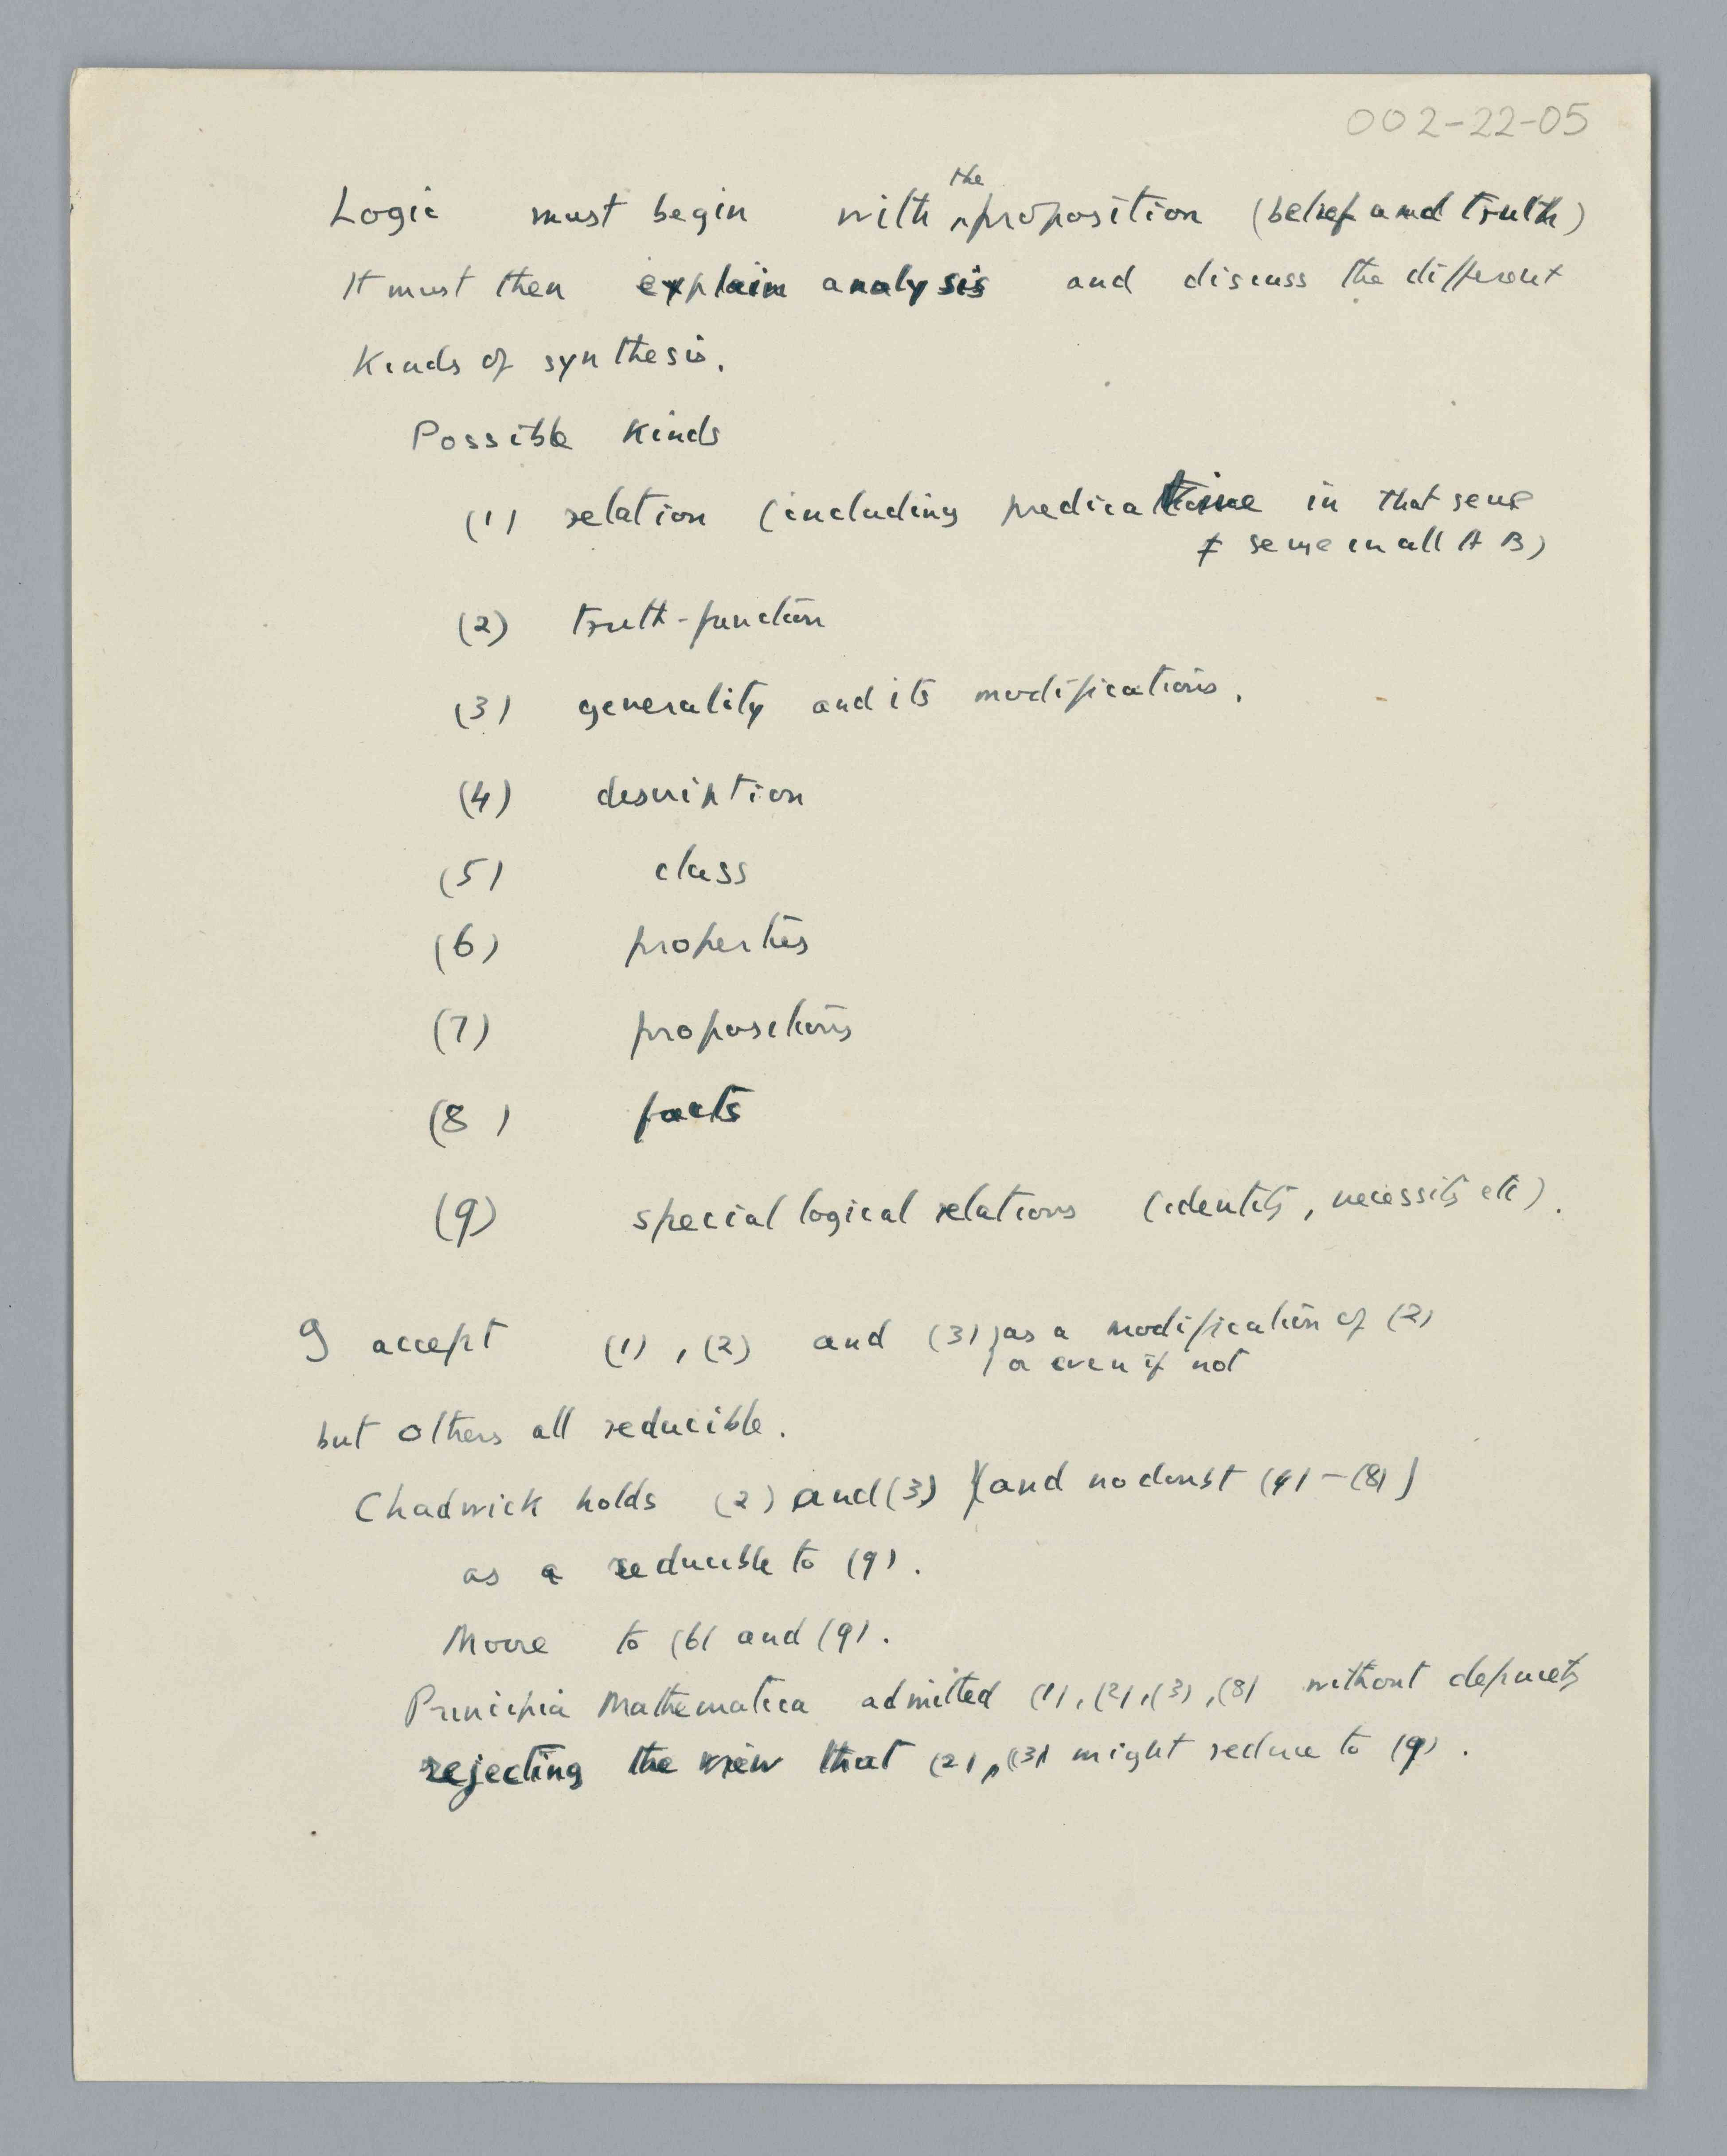 002-22-05
Logic must begin with the proposition (belief and truth)
It must then explain analysis and discuss the different
kinds of synthesis.
Possible kinds
(1) relation (including predica in that sense
≠ sense in all A B)
(2) truth-function
(3) generality and its modifications.
(4) description
(5) class
(6) properties
(7) propositions
(8) facts
(9) special logical relations (identity, necessity etc).
I accept (1), (2) and (3) } as a modification of (2)
or even if not
but others all reducible.
Chadwick holds (2) and (3) {and no doubt (4)–(8)}
as a reducible to (9).
Moore to (6) and (9).
Principia Mathematica admitted (1), (2), (3), (8) without
rejecting the view that (2), (3) might reduce to (9).